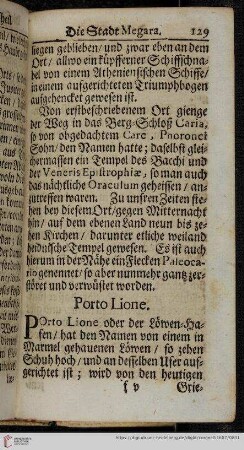 Die Stadt Megara. 129
liegen geblieben / und zwar eben an dem
Ort / allwo ein küpfferner Schiffschna-
bel von einem Atheniensischen Schiffe /
in einem aufgerichteten Triumphbogen
aufgehencket gewesen ist.
Von erstbeschriebenem Ort gienge
der Weg in das Berg-Schloß Caria,
so von obgedachtem Care, Phoronei
Sohn / den Namen hatte; daselbst glei-
chermassen ein Tempel des Bacchi und
der Veneris Epistrophiæ, so man auch
das nächtliche Oraculum geheissen / an-
zutreffen waren. Zu unsren Zeiten ste-
hen bey diesem Ort / gegen Mitternacht
hin / auf dem ebenen Land neun bis ze-
hen Kirchen / darunter etliche weiland
heidnische Tempel gewesen. Es ist auch
hierum in der Nähe ein Flecken Paleoca-
rio genennet / so aber nunmehr gantz zer-
störet und verwüstet worden.
Porto Lione.
POrto Lione oder der Löwen-Ha-
fen / hat den Namen von einem in
Marmel gehauenen Löwen / so zehen
Schuh hoch / und an desselben Ufer auf-
gerichtet ist; wird von den heutigen
f v Grie-